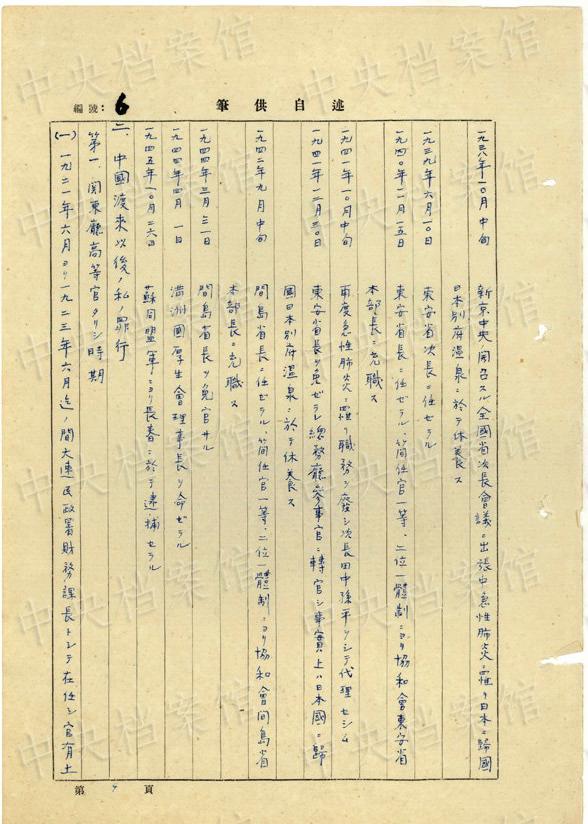 述自供筆
編號：6
一九三八年一〇月中旬　新京中央ノ開召スル全國省次長會議ニ出張中急性肺炎ニ罹リ日本ニ歸國
日本別府溫泉ニ於テ休養ス
一九三九年六月一〇日　東安省次長ニ任ゼラル
一九四〇年一一月一五日　東安省長ニ任ゼラル、簡任官一等、二位一體制ニヨリ協和會東安省
本部長ニ充職ス
一九四一年一〇月中旬　再度急性肺炎ニ罹リ職務ヲ廢シ次長田中孫平ヲシテ代理セシム
一九四一年一二月三〇日　東安省長ヲ免ゼラレ總務廳參事官ニ轉官シ事實上ハ日本國ニ歸
國日本別府溫泉ニ於テ休養ス
一九四二年九月中旬　間島省長ニ任ゼラル、簡任官一等、二位一體制ニヨリ協和會間島省
本部長ニ充職ス
一九四四年三月三一日　間島省長ヲ免官サル
一九四四年四月一日　滿洲國厚生會理事長ヲ命ゼラル
一九四五年一〇月二六日　蘇同盟軍ニヨリ長春ニ於テ逮捕セラル
二、中國渡來以後ノ私ノ罪行
第一、関東廳高等官タリシ時期
(一)一九二一年六月ヨリ一九二三年六月迄ノ間大連民政署財務課長トシテ在任シ官有土
第　頁
中央档案馆